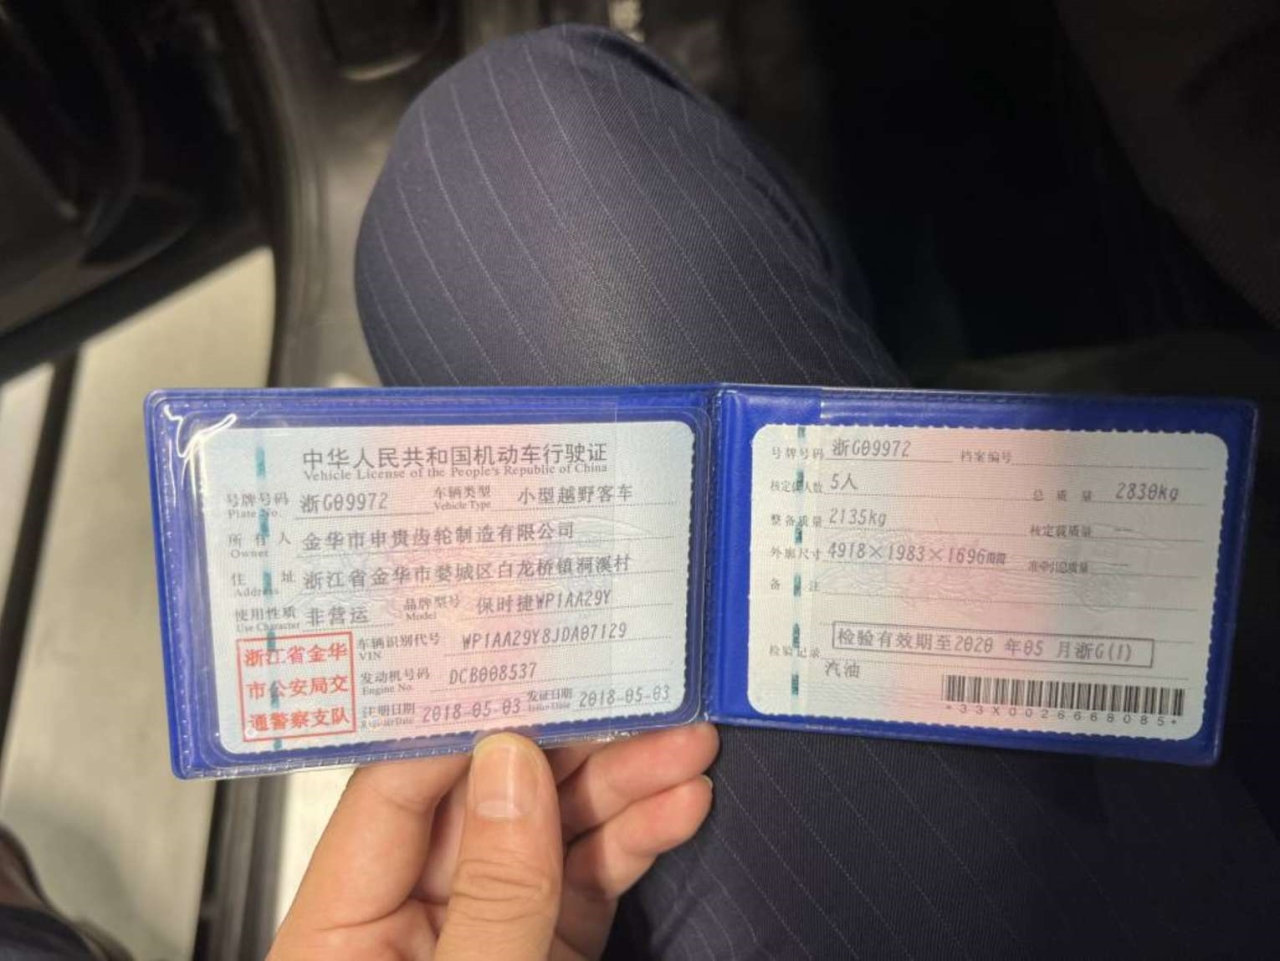 中华人民共和国机动车行驶证
Vehicle License of the People's Republic of China
号牌号码 浙G09972 车辆类型 小型越野客车
Plate No. Vehicle Type
所有人 金华市申贵齿轮制造有限公司
Owner
住址 浙江省金华市婺城区白龙桥镇洞溪村
Address
使用性质 非营运 品牌型号 保时捷WP1AA29Y
Use Character Model
浙江省金华
市公安局交
通警察支队
车辆识别代号 WP1AA29Y8JDA07129
VIN
发动机号码 DCB008537
Engine No.
注册日期 2018-05-03 发证日期 2018-05-03
Register Date Issue Date
号牌号码 浙G09972 档案编号
核定载人数 5人 总质量 2830kg
整备质量 2135kg 核定载质量 --
外廓尺寸 4918×1983×1696mm 准牵引总质量 --
备注
检验有效期至2020 年05 月浙G(1)
检验记录
汽油
*33X0026668085*